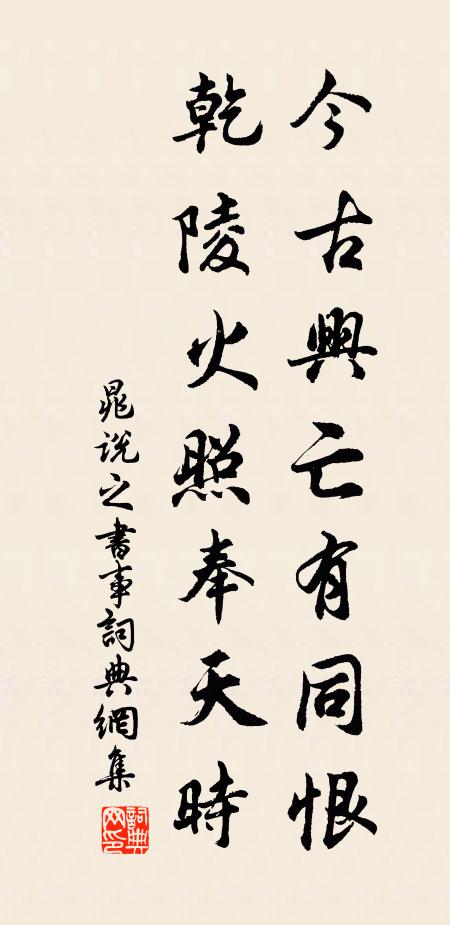 今古興亡有同恨
乾陵火照奉天時
晁說之書事詞典網集
詞典網印